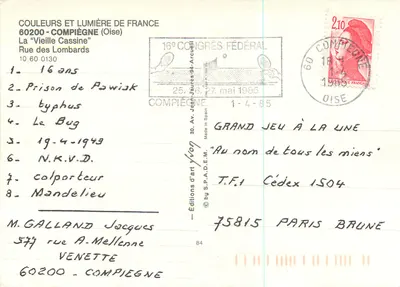 COULEURS ET LUMIÈRE DE FRANCE
60200 - COMPIÈGNE (Oise)
La "Vieille Cassine"
Rue des Lombards
10 60 0130
1- 16 ans
2- Prison de Pawiak
3- typhus
4- Le Bug
5- 19-4-1943
6- N.K.V.D.
7- colporteur
8- Mandelieu
M. GALLAND Jacques
577 rue A. Mellenne
VENETTE
60200 - COMPIEGNE
16e CONGRÈS FÉDÉRAL
mai 1985
COMPIEGNE 1-4-85
2,10
60 COMPIEGNE
1985
OISE
30, Av. Jean-Jaurès
- Éditions d'art yvon
Made in
© by S.P.A.D.E.M.
84
GRAND JEU À LA UNE
"Au nom de tous les miens"
T.F.1 Cédex 1504
75815 PARIS BRUNE